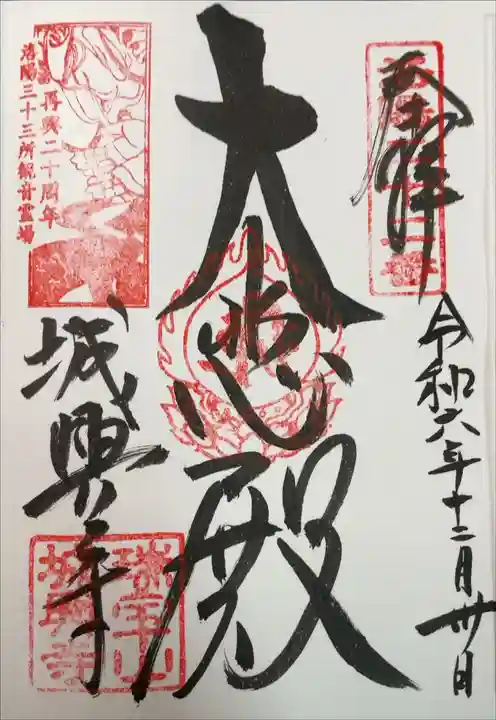 奉拝
令和六年十二月卅日
大悲殿
再興二十周年
洛陽三十三所観音霊場
城興寺
瑞宝山
城興寺